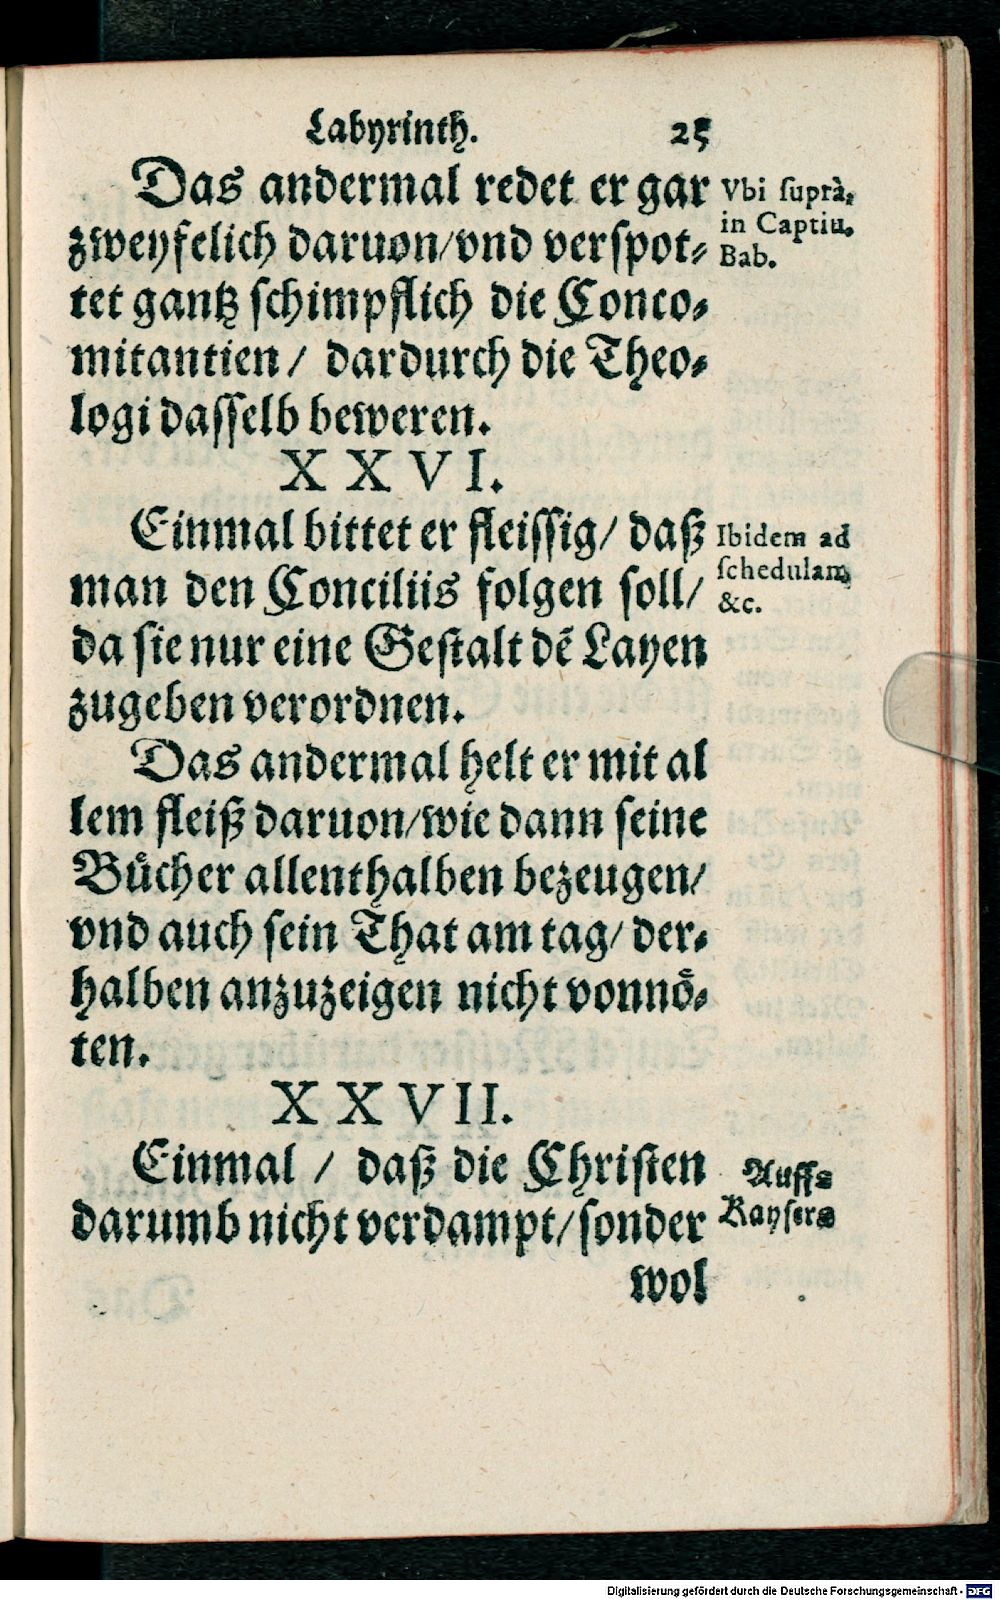 Labyrinth. 25
Das andermal redet er gar
zweyfelich daruon/vnd verspot⸗
tet gantz schimpflich die Conco⸗
mitantien / dardurch die Theo⸗
logi dasselb beweren.
Vbi suprà,
in Captiu.
Bab.
X X V I.
Einmal bittet er fleissig/ daß
man den Conciliis folgen soll/
da sie nur eine Gestalt dē Layen
zugeben verordnen.
Ibidem ad
schedulam,
&c.
Das andermal helt er mit al
lem fleiß daruon/wie dann seine
Bücher allenthalben bezeugen/
vnd auch sein That am tag/ der⸗
halben anzuzeigen nicht vonnö⸗
ten.
X X V I I.
Einmal / daß die Christen
darumb nicht verdampt/sonder
Auffs
Kaysers
wol
Digitalisierung gefördert durch die Deutsche Forschungsgemeinschaft - DFG